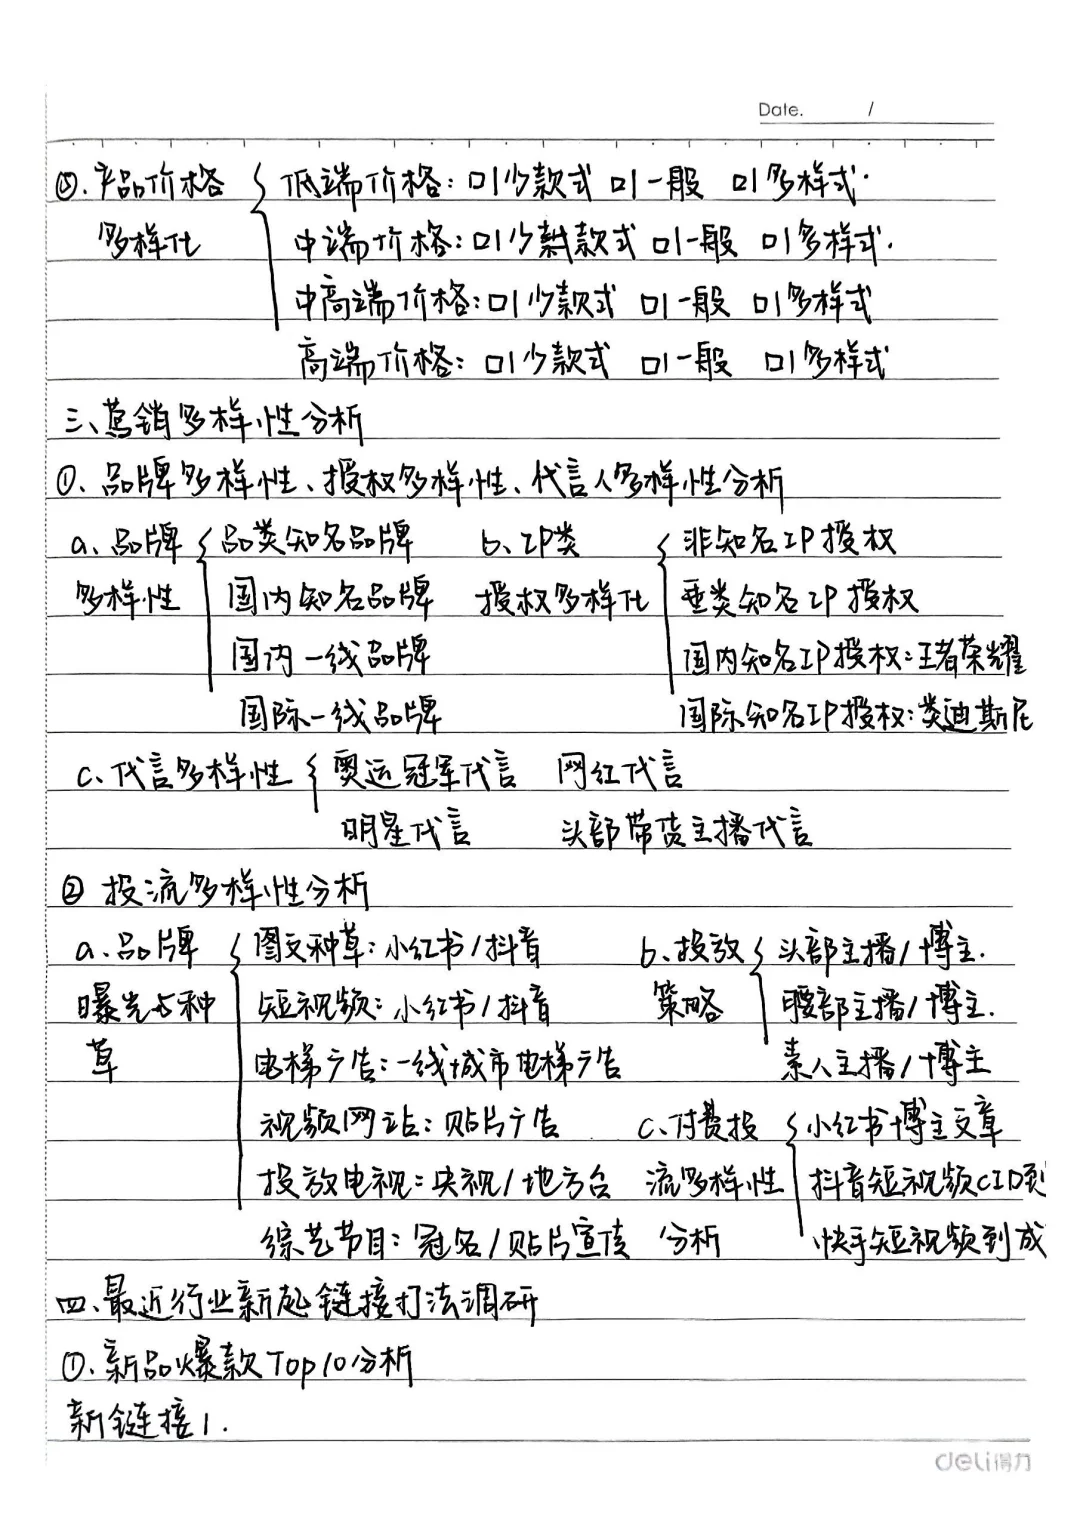 Date. /
产品价格 { 低端价格: 口1少款式 口1一般 口1多样式.
多样化 中端价格: 口1少款式 口1一般 口1多样式.
中高端价格: 口1少款式 口1一般 口1多样式
高端价格: 口1少款式 口1一般 口1多样式
三、营销多样性分析
①、品牌多样性、授权多样性、代言人多样性分析
a、品牌 { 品类知名品牌 b、IP类 { 非知名IP授权
多样性 国内知名品牌 授权多样化 垂类知名IP授权
国内一线品牌 国内知名IP授权:王者荣耀
国际一线品牌 国际知名IP授权:类迪斯尼
c、代言多样性 { 奥运冠军代言 网红代言
明星代言 头部带货主播代言
② 投流多样性分析
a、品牌 { 图文种草: 小红书/抖音 b、投放 { 头部主播/博主.
曝光与种 短视频: 小红书/抖音 策略 腰部主播/博主.
草 电梯广告: 一线城市电梯广告 素人主播/博主
视频网站: 贴片广告 c、付费投 { 小红书博主文章
投放电视: 央视/地方台 流多样性 抖音短视频CID
综艺节目: 冠名/贴片宣传 分析 快手短视频到成
四、最近行业新起链接打法调研
①、新品爆款Top10分析
新链接1.
deli得力